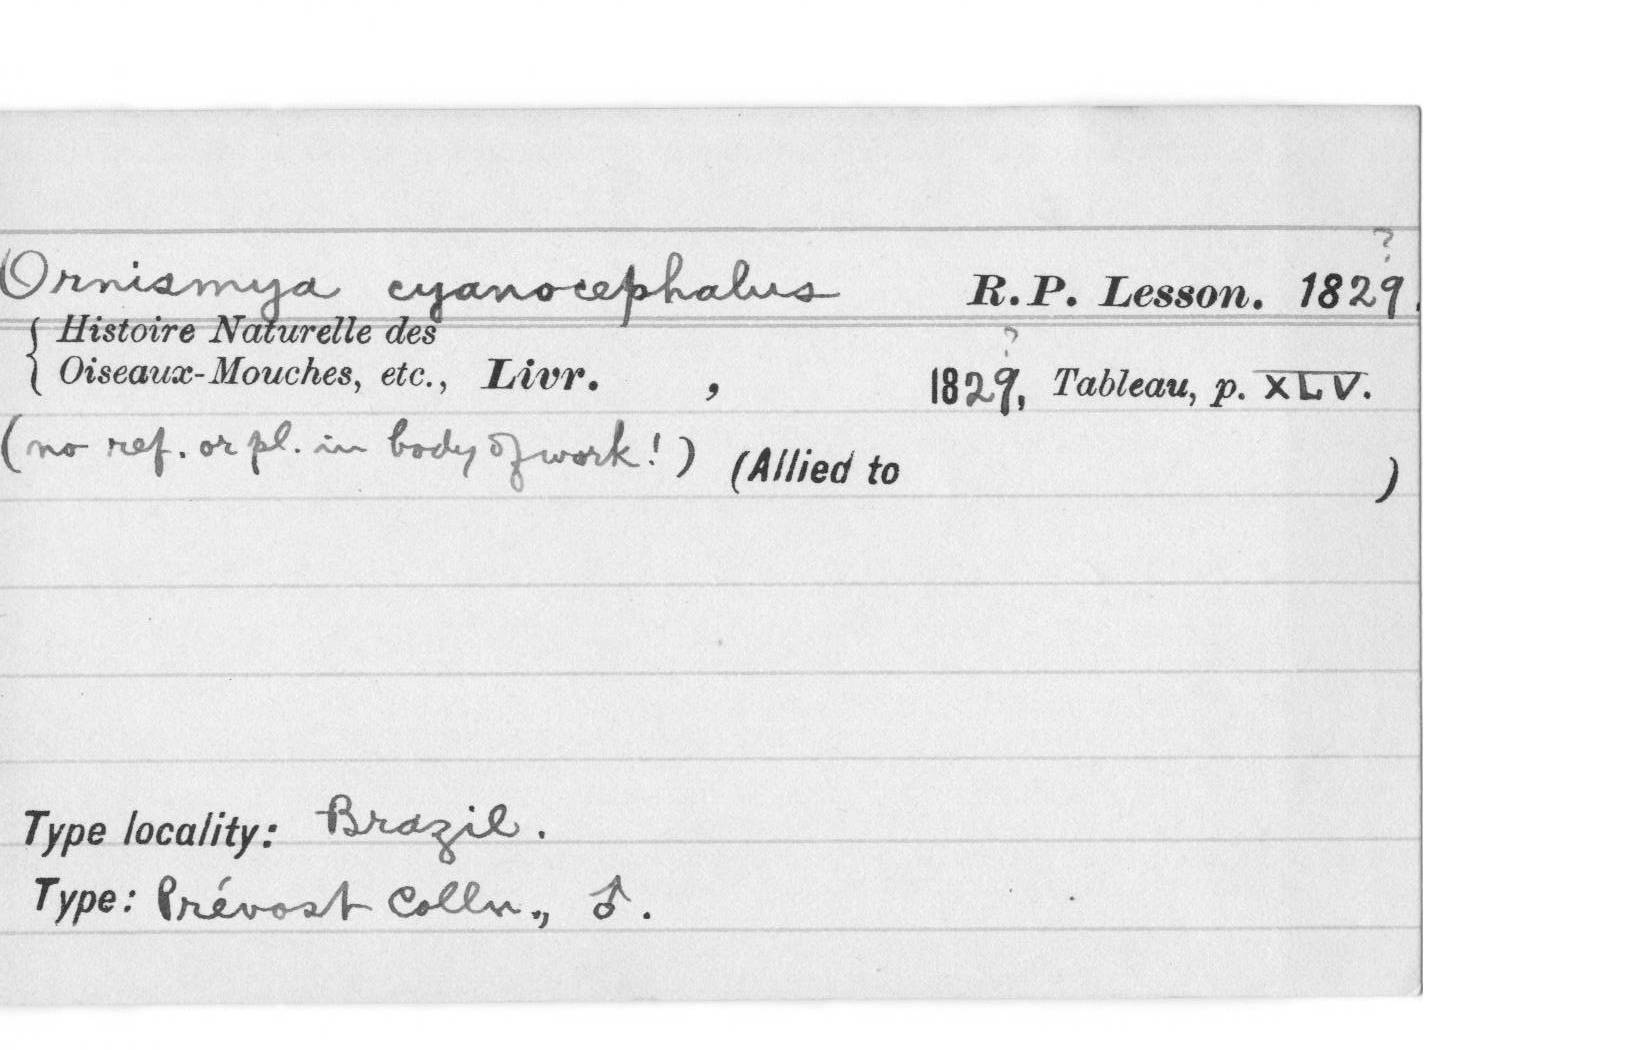 ?
Ornismya cyanocephalus R.P. Lesson. 1829.
{ Histoire Naturelle des
Oiseaux-Mouches, etc., Livr. , 1829?, Tableau, p. XLV.
(no ref. or pl. in body of work!) (Allied to )
Type locality: Brazil.
Type: Prévost Colln., ♂.